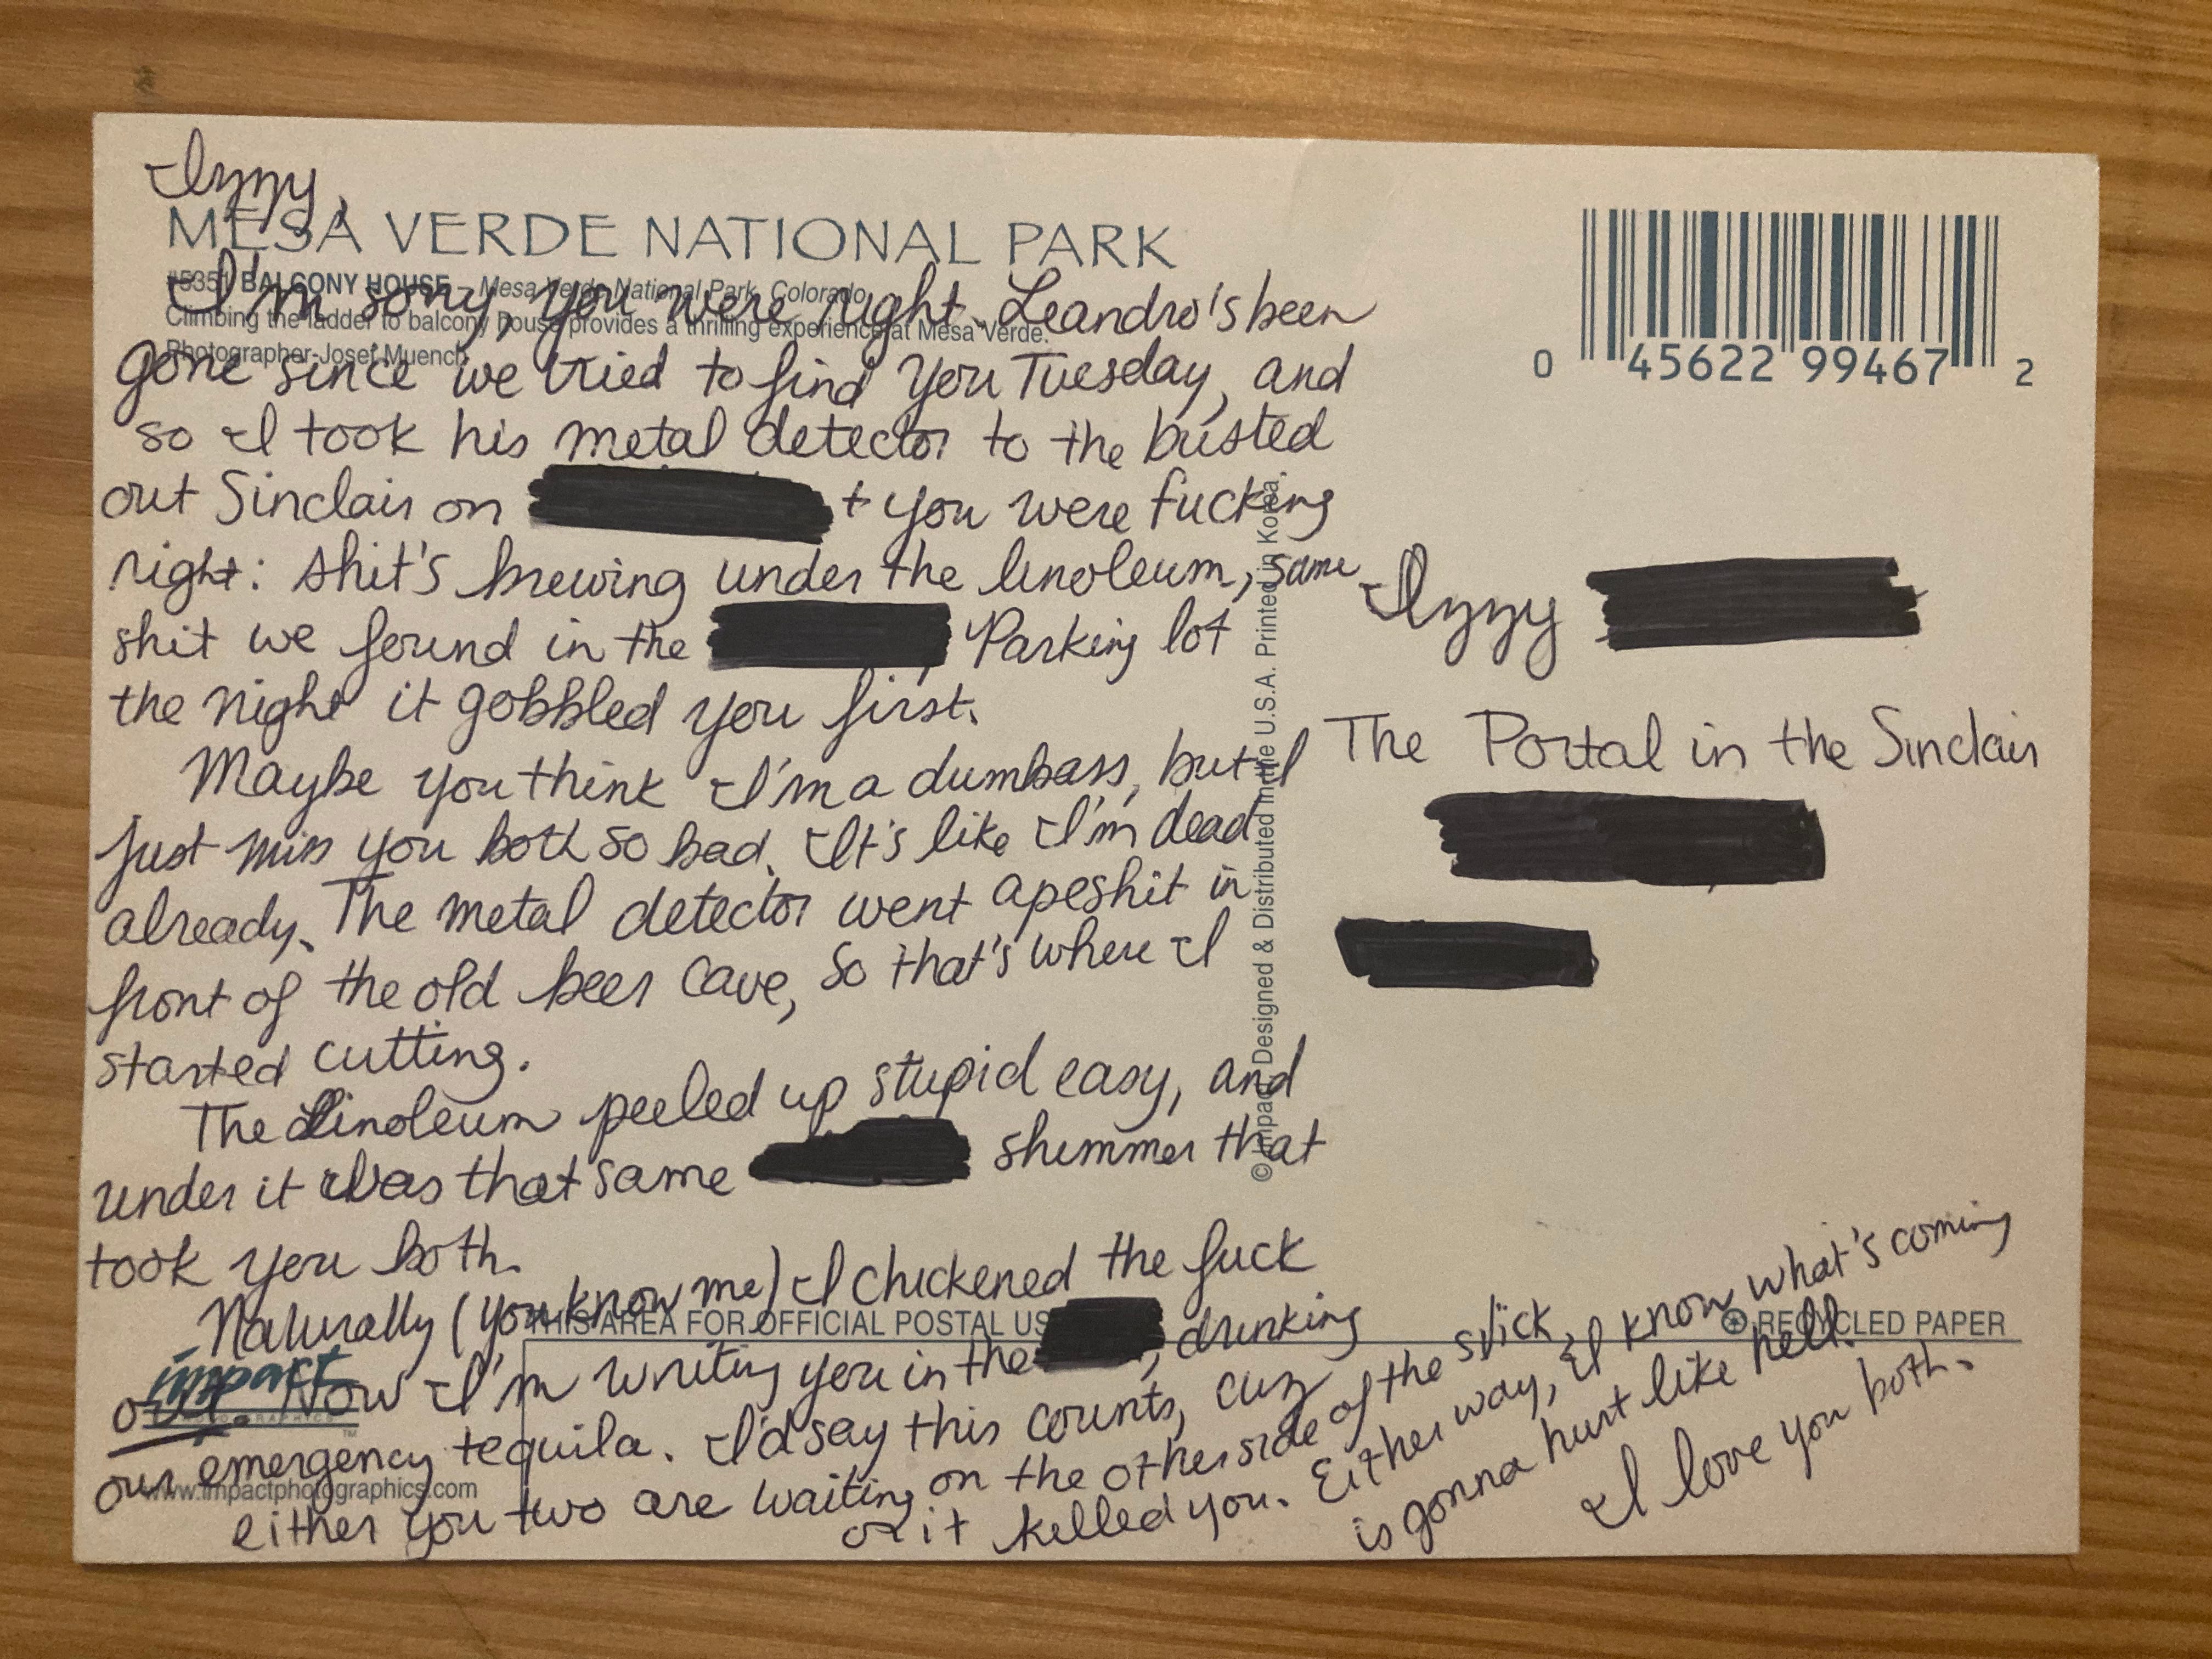 Izzy,
MESA VERDE NATIONAL PARK
#5351 BALCONY HOUSE – Mesa Verde National Park, Colorado
Climbing the ladder to balcony house provides a thrilling experience at Mesa Verde.
Photographer-Josef Muench
I'm sorry, you were right. Leandro's been
gone since we tried to find you Tuesday, and
so I took his metal detector to the busted
out Sinclair on + you were fucking
right: shit's brewing under the linoleum, same
shit we found in the Parking lot
the night it gobbled you first.
Maybe you think I'm a dumbass, but I
just miss you both so bad. It's like I'm dead
already. The metal detector went apeshit in
front of the old beer cave, so that's where I
started cutting.
The Linoleum peeled up stupid easy, and
under it was that same shimmer that
took you both.
Naturally (you know me) I chickened the fuck
out. Now I'm writing you in the , drinking
our emergency tequila. I'd say this counts, cuz
either you two are waiting on the other side of the slick,
or it killed you. Either way, I know what's coming
is gonna hurt like hell.
I love you both.
THIS AREA FOR OFFICIAL POSTAL US
impact
PHOTOGRAPHICS
TM
www.impactphotographics.com
© Impact Designed & Distributed in the U.S.A. Printed in Korea.
0 45622 99467 2
Izzy
The Portal in the Sinclair
RECYCLED PAPER